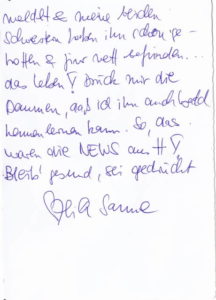 meldet & meine beiden
Schwestern haben ihn schon ge-
troffen & für nett befunden...
das Leben! Drück mir die
Daumen, daß ich ihn auch bald
kennenlernen kann. So, das
waren die NEWS aus H!
Bleib' gesund, sei gedrückt